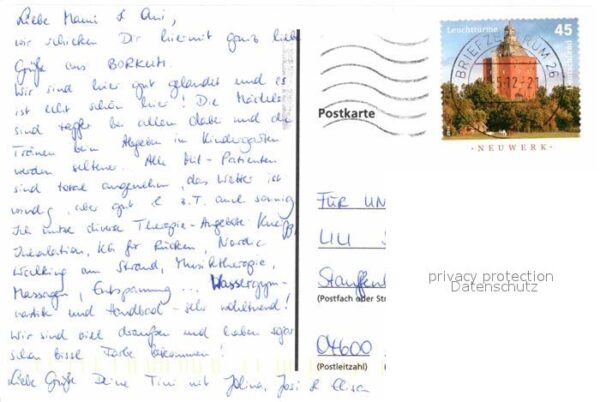 Liebe Mami & Omi,
wir schicken Dir hiermit ganz liebe
Grüße aus BORKUM.
Wir sind hier gut gelandet und es
ist echt schön hier! Die Mädels
sind tapfer bei allem dabei und die
Tränen beim Abgeben im Kindergarten
werden seltener... Alle Mit-Patienten
sind total angenehm, das Wetter ist
windig, aber gut & z.T. auch sonnig
Ich nutze diverse Therapie-Angebote: Kneipp,
Inhalation, KG für Rücken, Nordic
Walking am Strand, Musiktherapie,
Massagen, Entspannung... Wassergym-
nastik und Handbad - sehr wohltuend!
Wir sind viel draußen und haben sogar
schon bissl Farbe bekommen!
Liebe Grüße Deine Tini mit Jolina, Josi & Elisa
Leuchttürme 45
Deutschland
BRIEFZENTRUM 26
NEUWERK
Postkarte
FÜR UN
LILI
Stauffenb
(Postfach oder Str
04600
(Postleitzahl)
privacy protection
Datenschutz